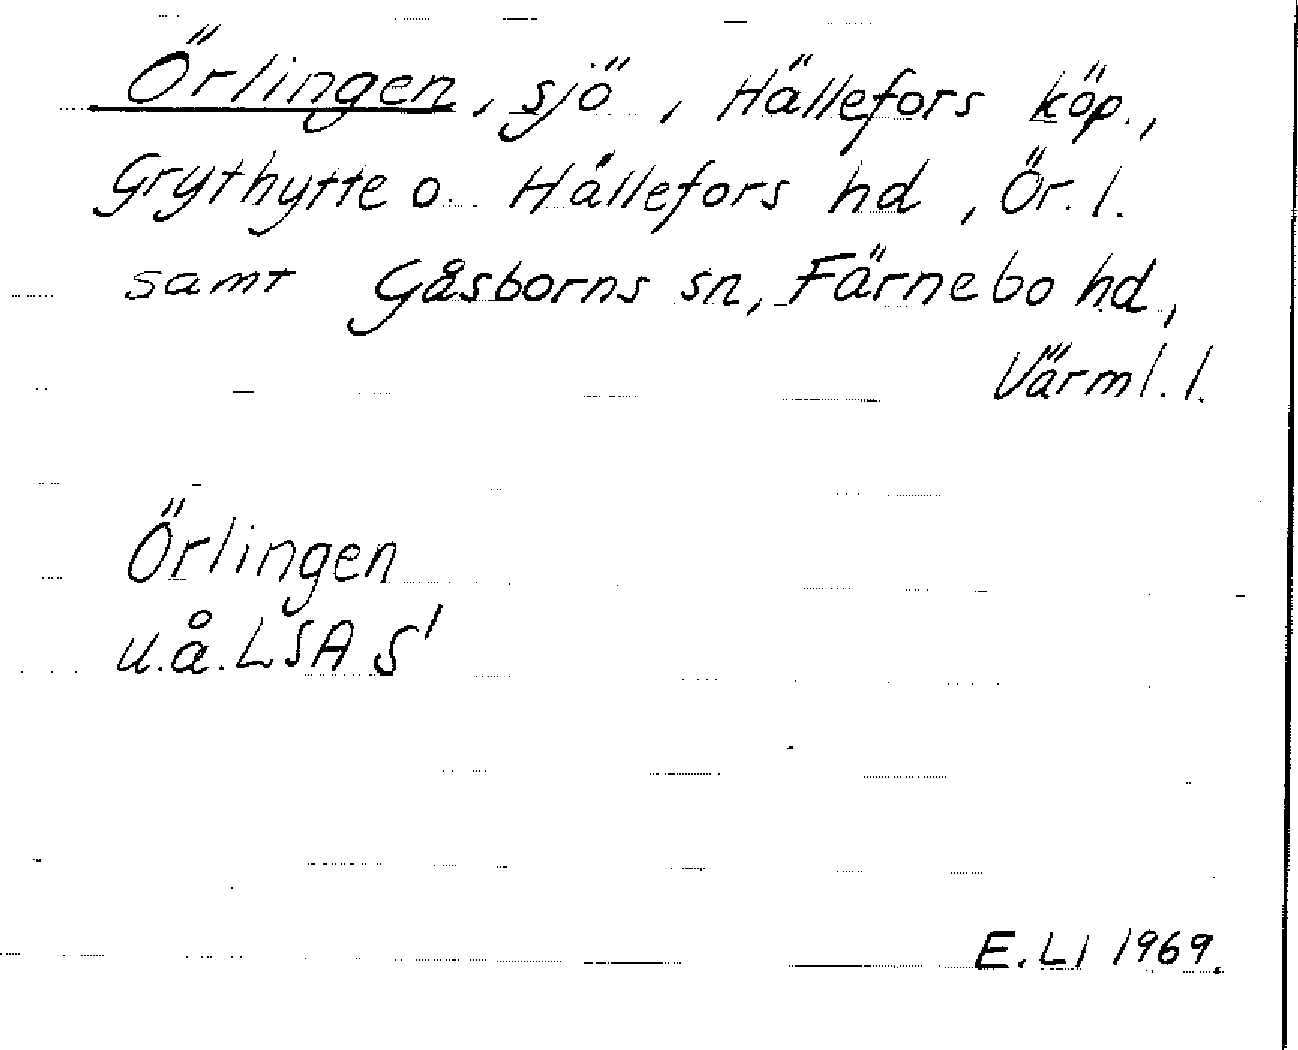 Örlingen, sjö, Hällefors köp.,
Grythytte o. Hällefors hd, Ör. l.
samt Gåsborns sn, Färnebo hd,
Värml. l.
Örlingen
u.å. LSA S1
E. Ll 1969.